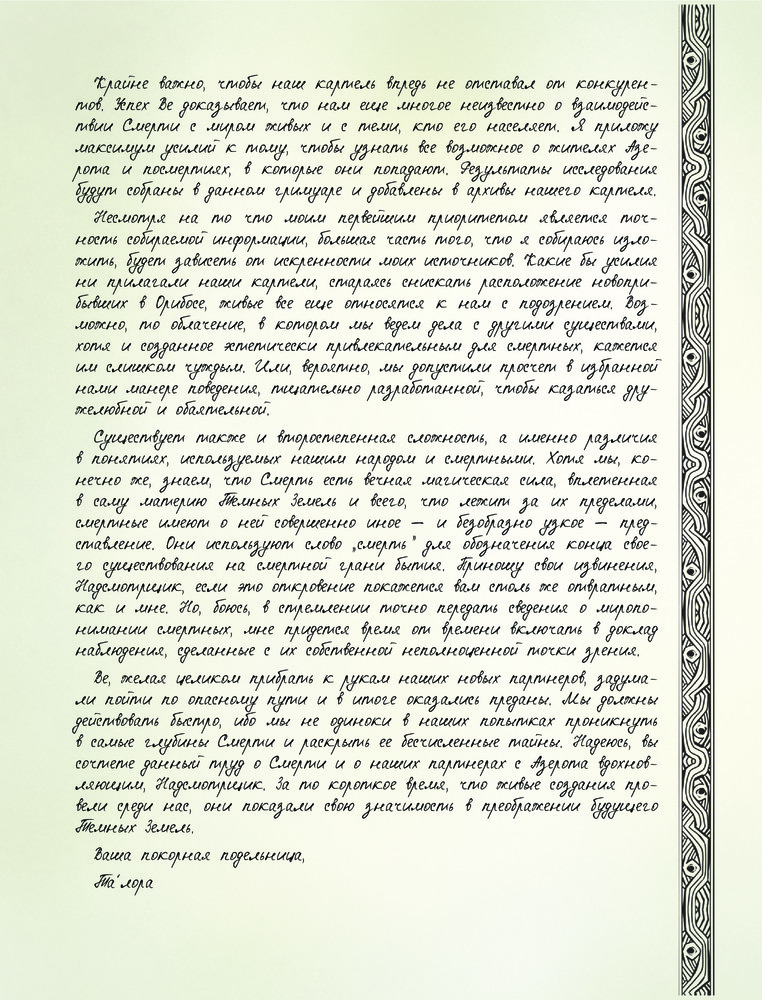 Крайне важно, чтобы наш картель впредь не отставал от конкурен-
тов. Успех Ве доказывает, что нам еще многое неизвестно о взаимодейс-
твии Смерти с миром живых и с теми, кто его населяет. Я приложу
максимум усилий к тому, чтобы узнать все возможное о жителях Азе-
рота и посмертиях, в которые они попадают. Результаты исследования
будут собраны в данном гримуаре и добавлены в архивы нашего картеля.
Несмотря на то что моим первейшим приоритетом является точ-
ность собираемой информации, большая часть того, что я собираюсь изло-
жить, будет зависеть от искренности моих источников. Какие бы усилия
ни прилагали наши картели, стараясь снискать расположение новопри-
бывших в Орибосе, живые все еще относятся к нам с подозрением. Воз-
можно, то облачение, в котором мы ведем дела с другими существами,
хотя и созданное эстетически привлекательным для смертных, кажется
им слишком чуждым. Или, вероятно, мы допустили просчет в избранной
нами манере поведения, тщательно разработанной, чтобы казаться дру-
желюбной и обаятельной.
Существует также и второстепенная сложность, а именно различия
в понятиях, используемых нашим народом и смертными. Хотя мы, ко-
нечно же, знаем, что Смерть есть вечная магическая сила, вплетенная
в саму материю Темных Земель и всего, что лежит за их пределами,
смертные имеют о ней совершенно иное — и безобразно узкое — пред-
ставление. Они используют слово „смерть" для обозначения конца свое-
го существования на смертной грани бытия. Приношу свои извинения,
Надсмотрщик, если это откровение покажется вам столь же отвратным,
как и мне. Но, боюсь, в стремлении точно передать сведения о миропо-
нимании смертных, мне придется время от времени включать в доклад
наблюдения, сделанные с их собственной неполноценной точки зрения.
Ве, желая целиком прибрать к рукам наших новых партнеров, задума-
ли пойти по опасному пути и в итоге оказались преданы. Мы должны
действовать быстро, ибо мы не одиноки в наших попытках проникнуть
в самые глубины Смерти и раскрыть ее бесчисленные тайны. Надеюсь, вы
сочтете данный труд о Смерти и о наших партнерах с Азерота вдохнов-
ляющим, Надсмотрщик. За то короткое время, что живые создания про-
вели среди нас, они показали свою значимость в преображении будущего
Темных Земель.
Ваша покорная подельница,
Та'лора